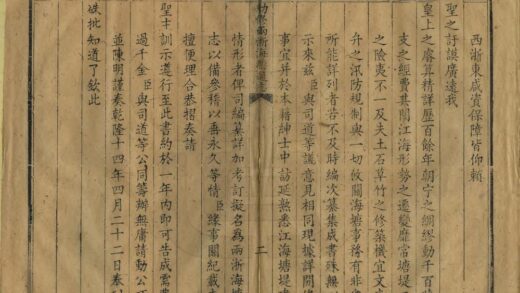 西浙東咸資保障皆仰賴
聖之訏謨廣遠我
皇上之睿算精詳歷百餘年朝宁之綢繆動千百
支之經費其閒江海形勢之遷變靡常塘堤
之險夷不一及夫土石草竹之修築機宜文
弁之汛防規制與一切攸關海塘事務有非
所能詳列者苦不及時編次纂集成書殊無
示來兹臣與司道等議意見相同現據詳開
事宜并於本籍紳士中訪延熟悉江海塘堤
情形者俾司編纂詳加考訂擬名為兩浙海塘
志以備參稽以垂永久等情臣緣事關紀載
擅便理合恭摺奏請
聖訓示遵行至此書約於一年內即可告成需費
過千金臣與司道等公同籌辦無庸請動公
並陳明謹奏乾隆十四年四月二十二日奉
硃批知道了欽此
二